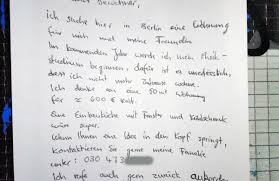 ich suche hier in Berlin eine Wohnung
für mich und meine Freundin
Im kommenden Jahr werde ich mein
studium beginnen, dafür ist es unerlässlich,
dass ich nicht mehr Zuhause wohne.
Ich denke an eine 50 m² Wohnung
für ≈ 600 € kalt.
Eine Einbauküche mit Fenster und
wäre super.
Wenn Ihnen eine Idee in den Kopf springt,
kontaktieren Sie gerne meine Familie
unter: 030 473
Ich rufe auch gern zurück